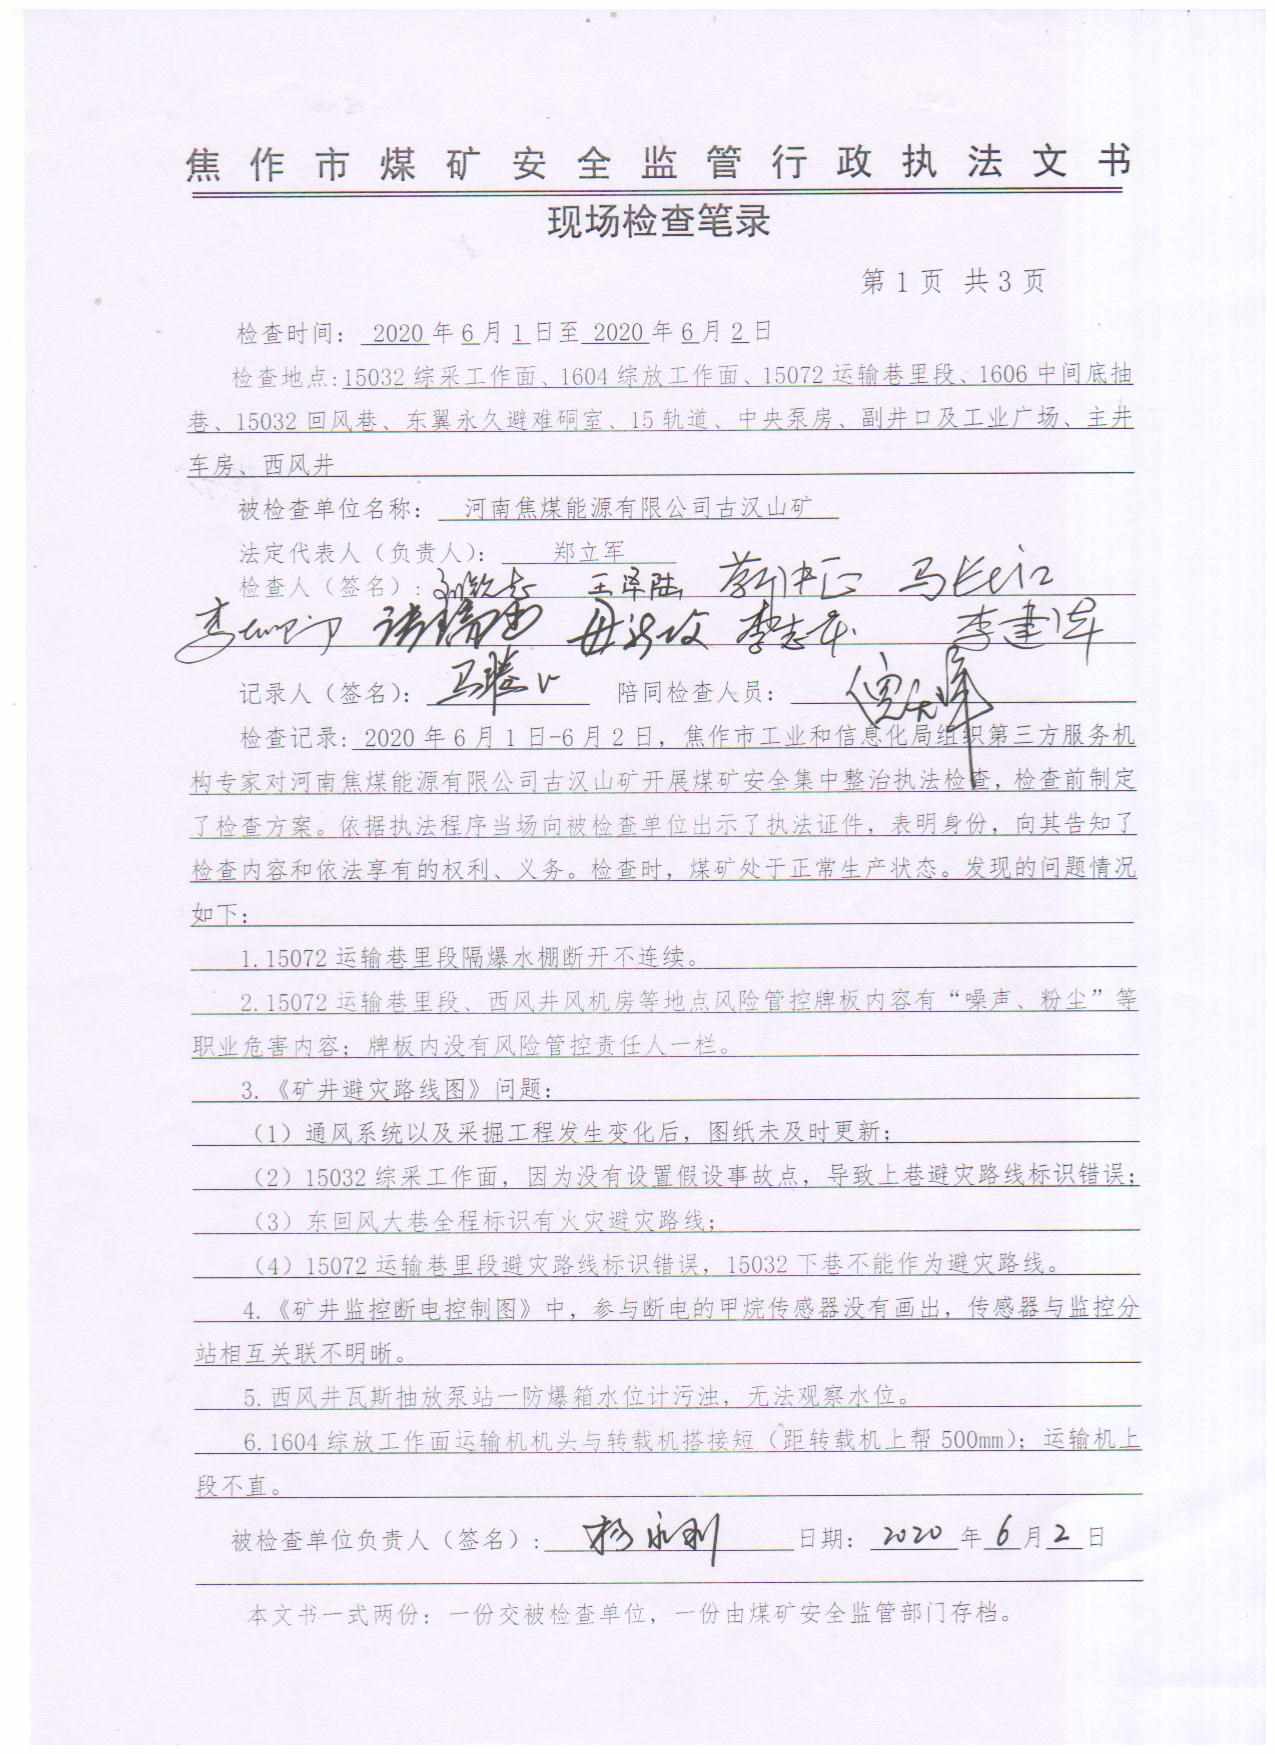 焦作市煤矿安全监管行政执法文书
现场检查笔录
第 1 页 共 3 页
检查时间： 2020 年 6 月 1 日至 2020 年 6 月 2 日
检查地点:15032 综采工作面、1604 综放工作面、15072 运输巷里段、1606 中间底抽
巷、15032 回风巷、东翼永久避难硐室、15 轨道、中央泵房、副井口及工业广场、主井
车房、西风井
被检查单位名称： 河南焦煤能源有限公司古汉山矿
法定代表人（负责人）： 郑立军
检查人（签名）: 王泽陆 马长江
李志军 李建伟
记录人（签名）： 陪同检查人员：
检查记录: 2020 年 6 月 1 日-6 月 2 日，焦作市工业和信息化局组织第三方服务机
构专家对河南焦煤能源有限公司古汉山矿开展煤矿安全集中整治执法检查，检查前制定
了检查方案。依据执法程序当场向被检查单位出示了执法证件，表明身份，向其告知了
检查内容和依法享有的权利、义务。检查时，煤矿处于正常生产状态。发现的问题情况
如下：
1.15072 运输巷里段隔爆水棚断开不连续。
2.15072 运输巷里段、西风井风机房等地点风险管控牌板内容有“噪声、粉尘”等
职业危害内容；牌板内没有风险管控责任人一栏。
3.《矿井避灾路线图》问题：
（1）通风系统以及采掘工程发生变化后，图纸未及时更新；
（2）15032 综采工作面，因为没有设置假设事故点，导致上巷避灾路线标识错误；
（3）东回风大巷全程标识有火灾避灾路线；
（4）15072 运输巷里段避灾路线标识错误，15032 下巷不能作为避灾路线。
4.《矿井监控断电控制图》中，参与断电的甲烷传感器没有画出，传感器与监控分
站相互关联不明晰。
5.西风井瓦斯抽放泵站一防爆箱水位计污浊，无法观察水位。
6.1604 综放工作面运输机机头与转载机搭接短（距转载机上帮 500mm）；运输机上
段不直。
被检查单位负责人（签名）: 杨永利 日期： 2020 年 6 月 2 日
本文书一式两份：一份交被检查单位，一份由煤矿安全监管部门存档。